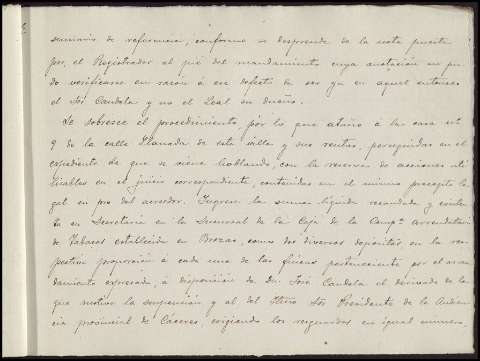 sumario de referencia, conforme se desprende de la nota puesta
por el Registrador al pié del mandamiento cuya anotacion no pu-
do verificarse en razón á ese defecto de ser ya en aquel entonces
el Sor Candela y no el Leal su dueño.
Se sobresee el procedimiento por lo que atañe á la casa nº
9 de la calle Llanada de esta villa y sus rentas, perseguidas en el
expediente de que se viene hablando, con la reserva de acciones uti-
lizables en el juicio correspondiente, contenidas en el mismo precepto le-
gal en pro del acreedor. Ingrese la suma líquida recaudada y existen-
te en Secretaria en la Sucursal de la Caja de la Campª Arrendataria
de Tabacos establecida en Brozas, como dos diversos depósitos en la res-
pectiva proporción á cada una de las fincas pertenecientes por el arren-
damiento expresado, á disposición de Dn José Candela el derivado de la
que motiva la suspensión y al del Iltmo Sor Presidente de la Audien-
cia provincial de Cáceres, exigiendo los resguardos en igual número.